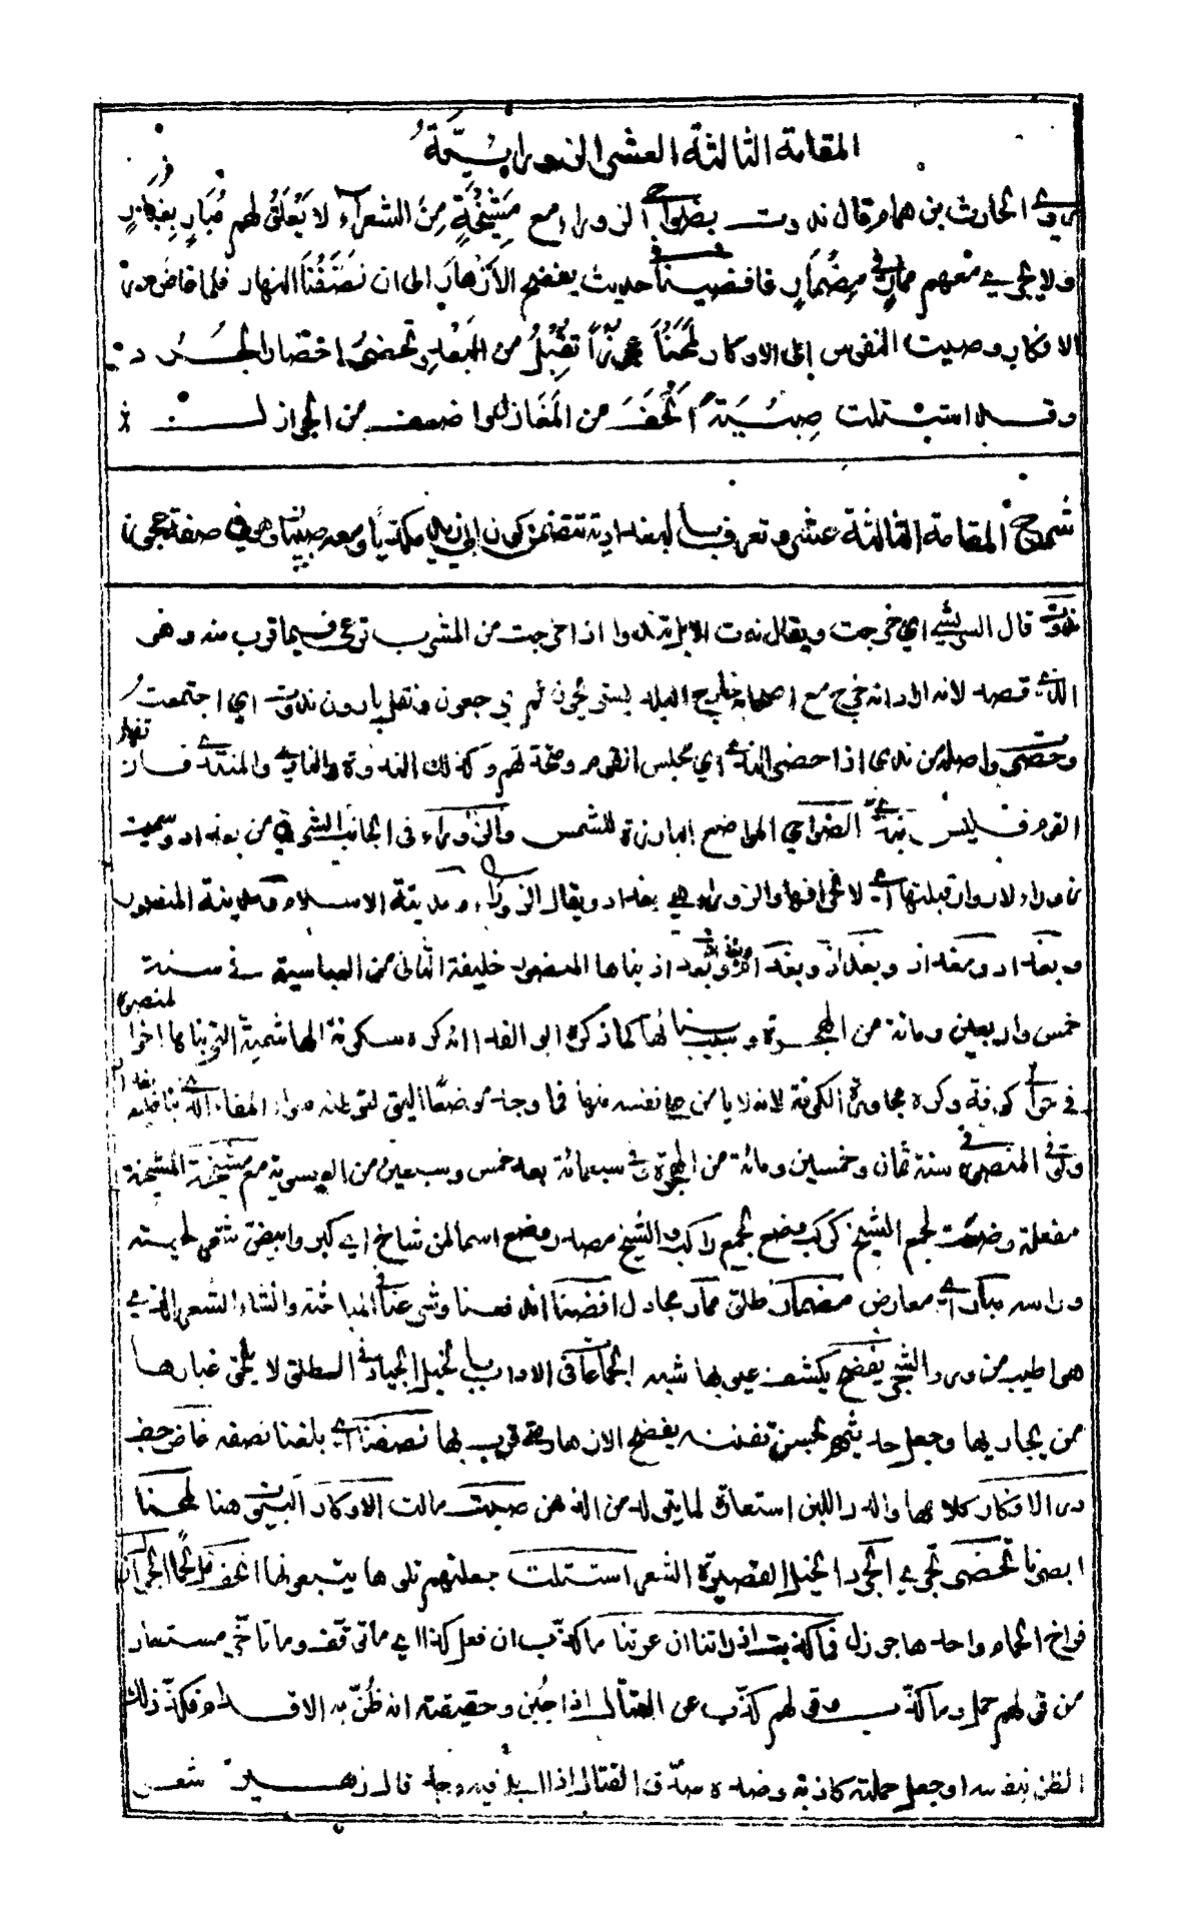 المقامة الثالثة العشر الزورائيّة
روى الحارث بن همام قال ندوت بضواحي الزوراء مع مَشِيْخَةٍ مِنَ الشعراء لا يَعْلَقُ لهم مُبَارٍ بِغُبَارٍ
ولا يجري معهم ممارٍ في مِضْمَارٍ فافضينا في حديث يفضح الأزهارَ الى ان نَصَفْنَا النهار فلما غاض در
الافكار وصبت النفوس الى الاوكار لَمَحْنَا عجوزاً تُقْبِلُ من البُعْدِ وتحضر احضار الجرد
وقد استتلت صِبْيَةً انحَفَ من المَغَازل واضعف من الجوازل
شرح المقامة الثالثة عشر وتعرف بالبغدادية تتضمن كون ابي زيد مكديا ومعه صبيان وهو في صفة عجوز
ندوت قال الشريشي اي خرجت ويقال ندت الابل تندوا اذا خرجت من المشرب ترعى فيما قرب منه وهو
الذي قصد لانه اراد انه خرج مع اصحابه خارج البلد ثم يرجعون وتقلب يارون ندوت اي اجتمعت
وحضرت واصله من ندى اذا حضر الندى اي مجلس القوم ومتحدثهم وكذلك الندوة والنادي والمنتدى فان تفرق
القوم فليس بندي الضواحي المواضع البارزة للشمس والزوراء في الجانب الشرقي من بغداد وسميت
زوراء لازورار قبلتها اي لانحرافها والزوراء هي بغداد ويقال الزوراء ومدينة الاسلام ومدينة المنصور
وبغداد وبغداذ وبغذاذ وبغدان بناها المنصور خليفة الثاني من العباسية في سنة
خمس واربعين ومائة من الهجرة وسبب بنائها كما ذكره ابو الفداء انه كره سكونة الهاشمية التي بناها اخوا المنصور
في حوالي كوفة وكره مجاورة الكوفة لانه لا يامن على نفسه منها
وتوفي المنصور في سنة ثمان وخمسين ومائة من الهجرة في سبعمائة بعد خمس وسبعين من العيسوية مع مشيخة المشيخة
مفعلة وضعت لجمع الشيخ كركب وضع لجمع راكب والشيخ مصدر وضع اسما لمن شاخ اي كبر وابيض شعر لحيته
وراسه مبار اي معارض مضمار طلق ممار مجادل افضنا اندفعنا وشرعنا في المباحثة وانشاء الشعر الذي
هو اطيب من ورد الشجر يفضح يكشف عيوبها شبه الجماعة في الاداب بالخيل الجياد في السباق لا يلحق غبارها
من يجاريها وجعل حديثهم لحسن تفننه يفضح الازهار حتى قرب بها نصفنا اي بلغنا نصفه غاض جف
در الافكار كلامها والدر اللبن استعارة لما يتولد من الذهن صبت مالت الاوكار البيوت هنا لمحنا
ابصرنا تحضر تجري الجرد الخيل القصيرة الشعر استتلت جعلتهم تلوها يتبعونها انحف الجوازل
فراخ الحمام واحدها جوزل فما كذبت اذ راتنا ان عرتنا ما كذّب ان فعل كذا اي ما توقف وما تاخر مستعار
من قولهم حمل وما كذّب وقولهم كذّب عن القتال اذا جبن وحقيقته ان ظُنّ به الاقدام فكذّب ذلك
الظن بنفسه او جعل حملته كاذبة وضده صدق القتال اذا بذل فيه وجد قال زهير شعر